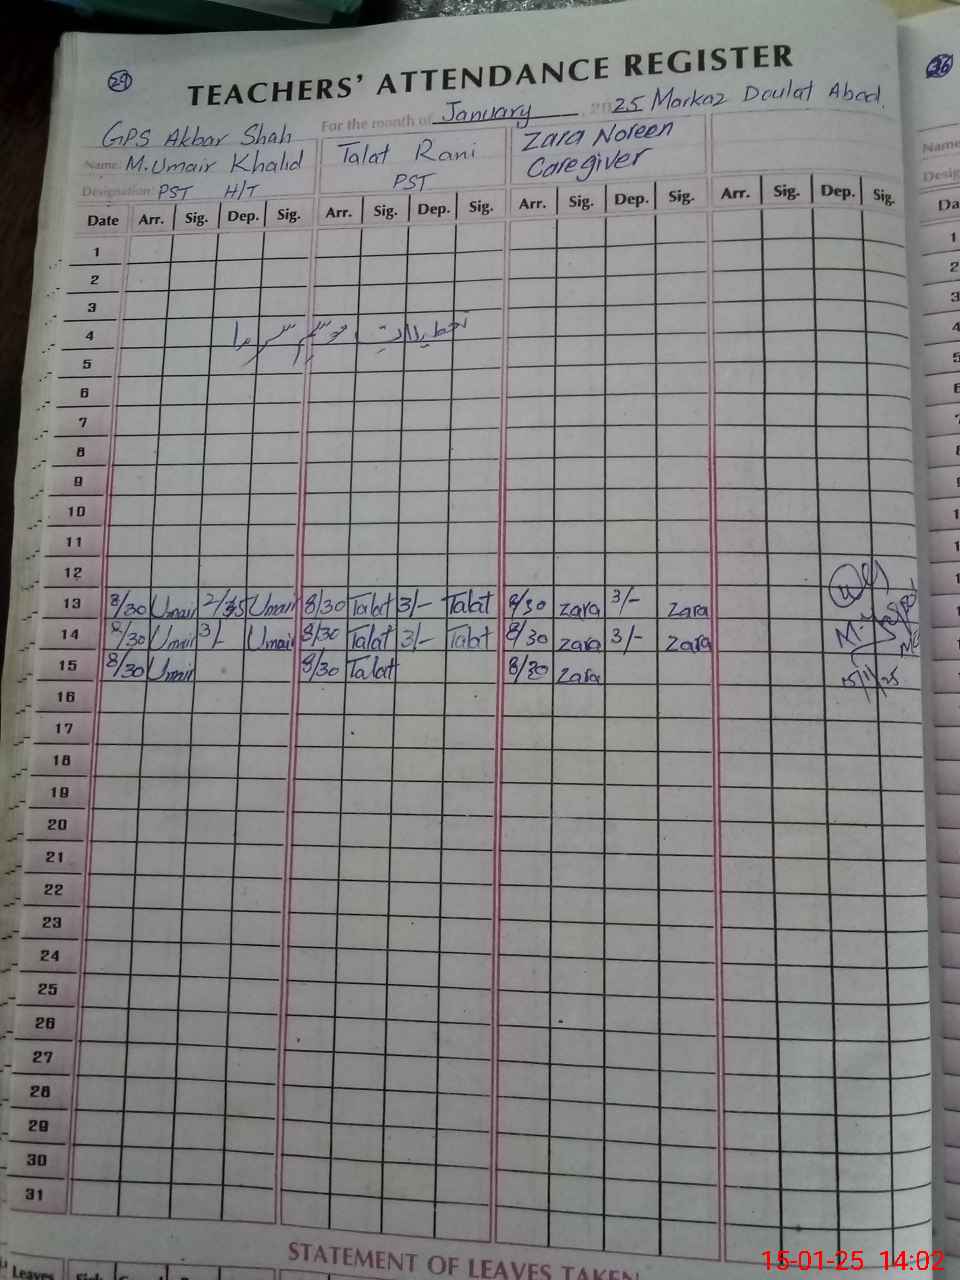 29
TEACHERS' ATTENDANCE REGISTER
36
For the month of January 2025 Markaz Daulat Abad.
GPS Akbar Shah
Name: M. Umair Khalid Talat Rani Zara Noreen
Designation: PST H/T PST Caregiver
Date Arr. Sig. Dep. Sig. Arr. Sig. Dep. Sig. Arr. Sig. Dep. Sig. Arr. Sig. Dep. Sig.
1
2
3
4 تعطیلات موسم سرما
5
6
7
8
9
10
11
12
13 8/30 Umair Umair 8/30 Talat 3/- Talat 8/30 zara 3/- zara
14 8/30 Umair 3/- Umair 8/30 Talat 3/- Talat 8/30 zara 3/- zara
15 8/30 Umair 8/30 Talat 8/30 zara
16
17
18
19
20
21
22
23
24
25
26
27
28
29
30
31
STATEMENT OF LEAVES TAKEN
Leaves
15-01-25 14:02